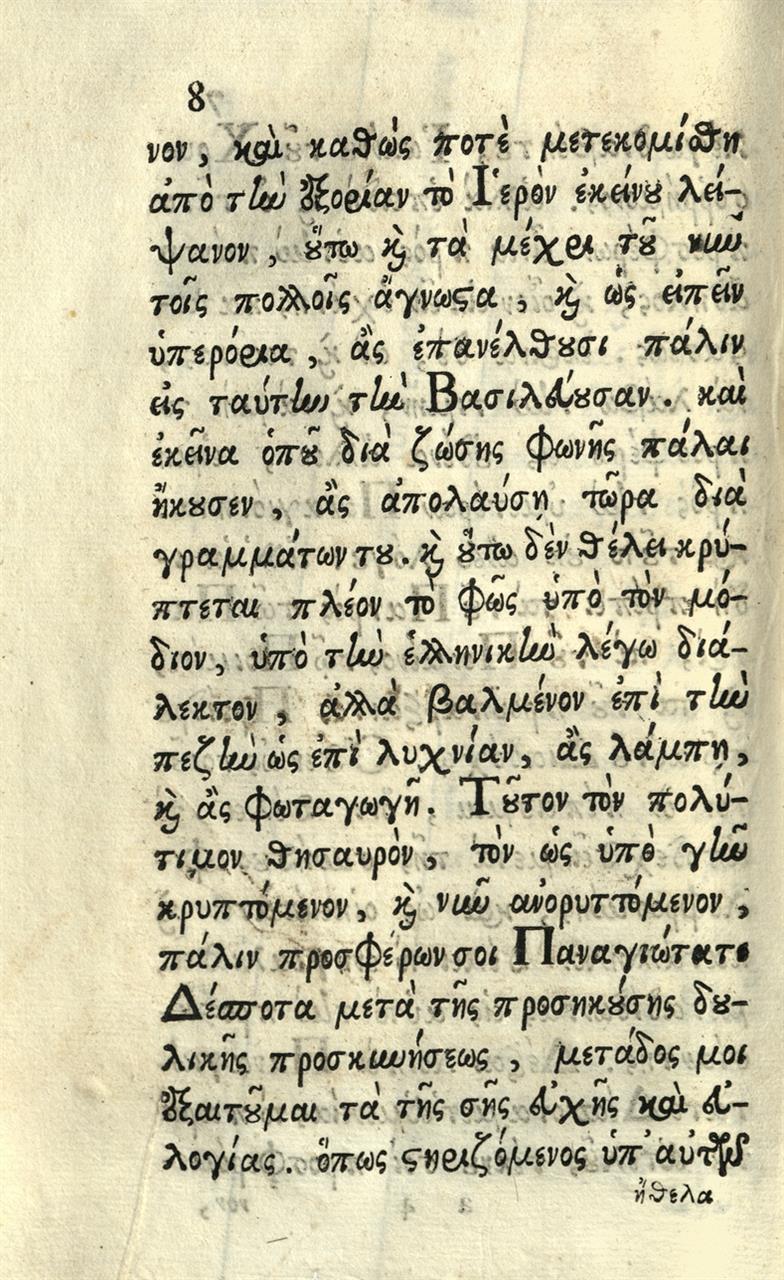 8
νον, καὶ καθὼς ποτὲ μετεκομίσθη
ἀπὸ τὴν ἐξορίαν τὸ Ἱερὸν ἐκείνου λεί-
ψανον, οὕτω καὶ τὰ μέχρι τοῦ νῦν
τοῖς πολλοῖς ἄγνωστα, καὶ ὡς εἰπεῖν
ὑπερόρια, ἂς ἐπανέλθουσι πάλιν
εἰς ταύτην τὴν Βασιλεύουσαν. καὶ
ἐκεῖνα ὁποῦ διὰ ζώσης φωνῆς πάλαι
ἤκουσεν, ἂς ἀπολαύσῃ τῶρα διὰ
γραμμάτων του. καὶ οὕτω δὲν θέλει κρύ-
πτεται πλέον τὸ φῶς ὑπὸ τὸν μό-
διον, ὑπὸ τὴν ἑλληνικὴν λέγω διά-
λεκτον, ἀλλὰ βαλμένον ἐπὶ τὴν
πεζὴν ὡς ἐπὶ λυχνίαν, ἂς λάμπῃ,
καὶ ἂς φωταγωγῇ. Τοῦτον τὸν πολύ-
τιμον θησαυρὸν, τὸν ὡς ὑπὸ γῆν
κρυπτόμενον, καὶ νῦν ἀνορυττόμενον,
πάλιν προσφέρων σοι Παναγιώτατε
Δέσποτα μετὰ τῆς προσηκούσης δου-
λικῆς προσκυνήσεως, μετάδος μοι
ἐξαιτοῦμαι τὰ τῆς σῆς εὐχῆς καὶ εὐ-
λογίας. ὅπως στηριζόμενος ὑπ' αὐτῶν
ἤθελα